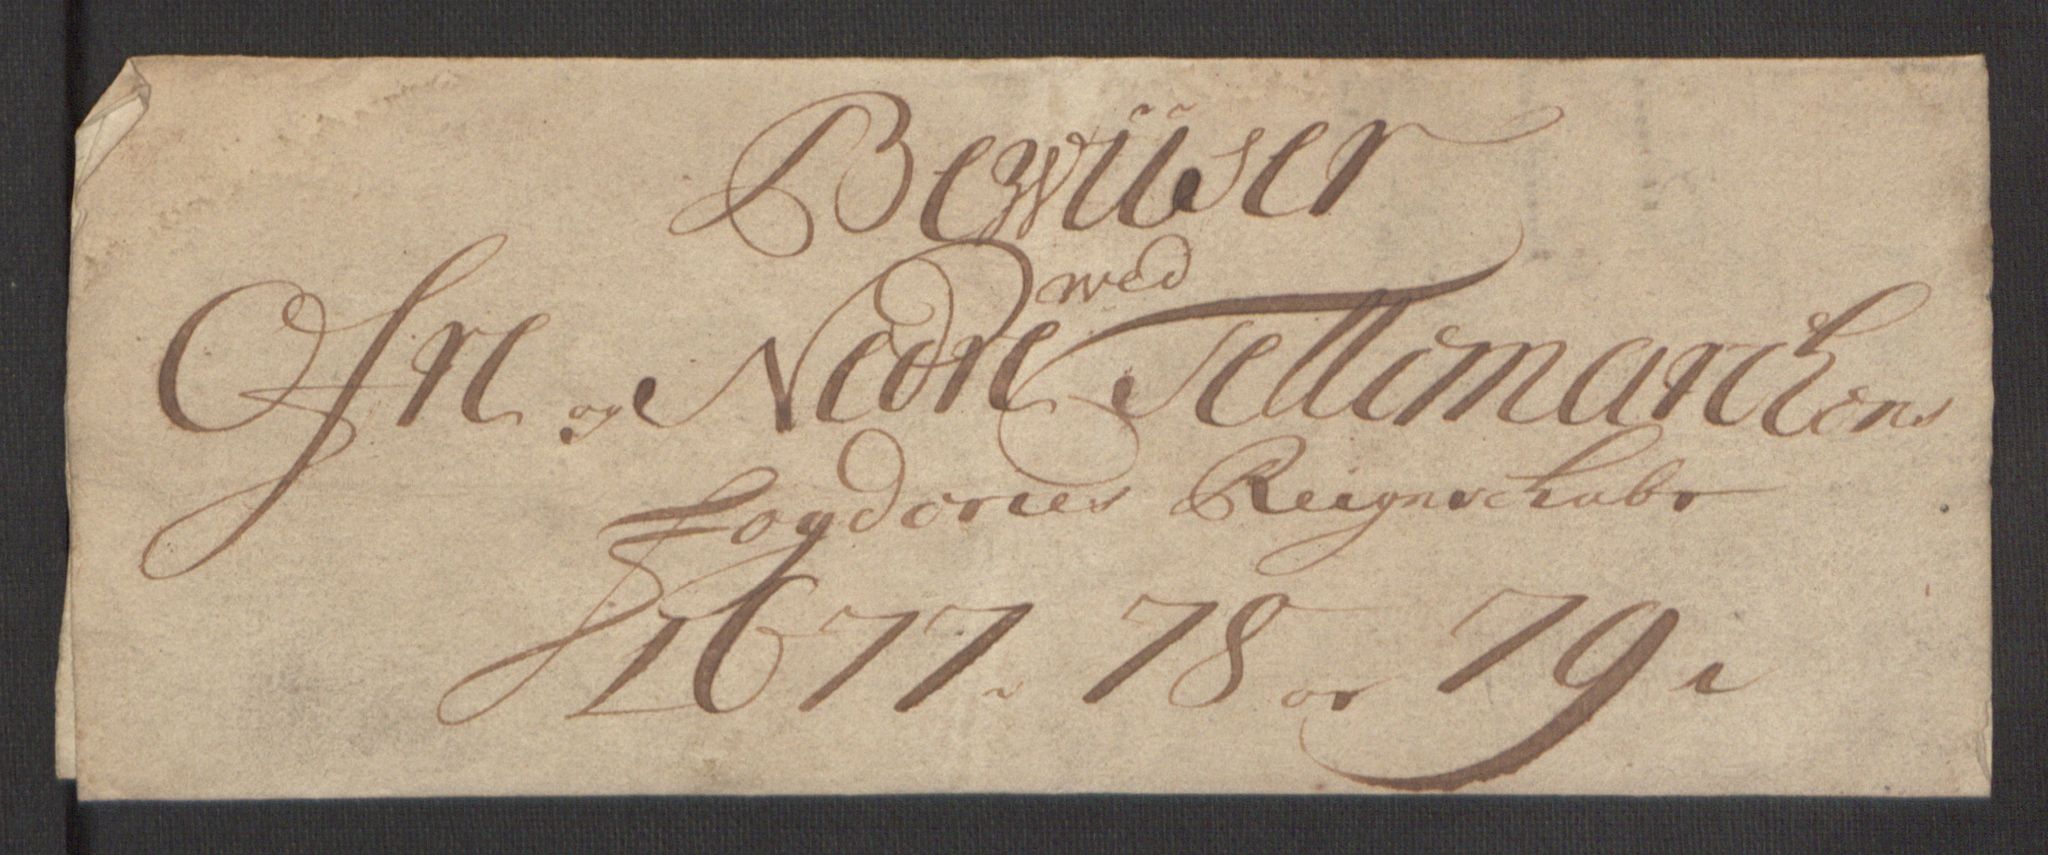 Bewiiser
wed
Ofre og Nedre Tellemarchens
Fogderies Reigenschaber
1677. 78 og 79.